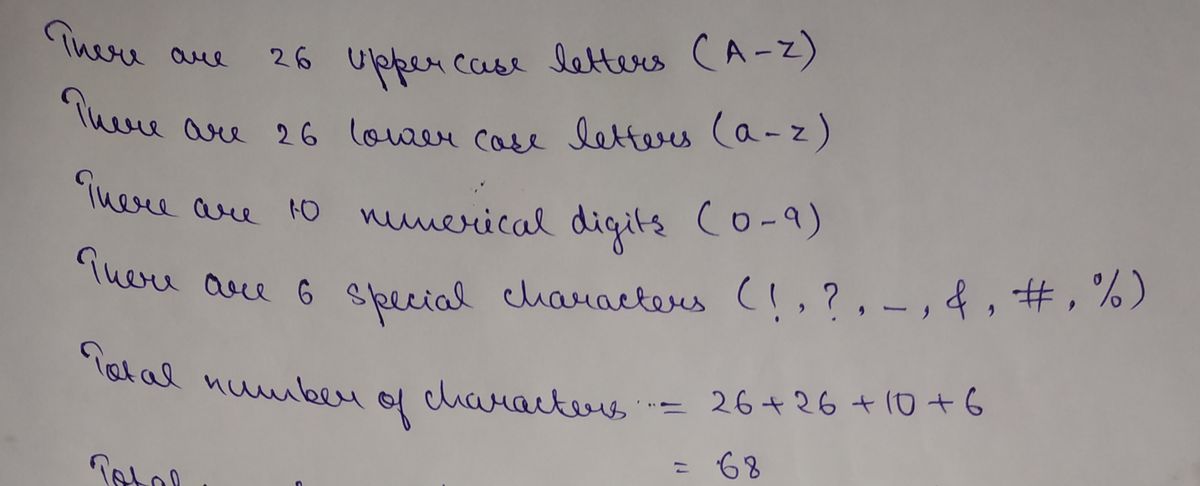 There are 26 uppercase letters (A-Z)
There are 26 lower case letters (a-z)
There are 10 numerical digits (0-9)
There are 6 special characters (!, ?, _, &, #, %)
Total number of characters = 26+26+10+6
= 68
Total